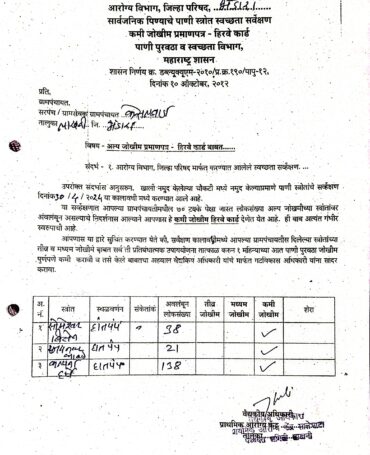 आरोग्य विभाग, जिल्हा परिषद, भंडारा
सार्वजनिक पिण्याचे पाणी स्त्रोत स्वच्छता सर्वेक्षण
कमी जोखीम प्रमाणपत्र - हिरवे कार्ड
पाणी पुरवठा व स्वच्छता विभाग,
महाराष्ट्र शासन
शासन निर्णय क्र. डब्ल्यूक्यूएम-२०१०/प्र.क्र.१९०/पापु-१२,
दिनांक १० ऑक्टोबर, २०१२
प्रति,
ग्रामपंचायत.
सरपंच / ग्रामसेवक ग्रामपंचायत
तालुका जि. भंडारा
विषय - अल्प जोखीम प्रमाणपत्र - हिरवे कार्ड बाबत
संदर्भ - १. आरोग्य विभाग, जिल्हा परिषद मार्फत करण्यात आलेले स्वच्छता सर्वेक्षण.
उपरोक्त संदर्भास अनुसरून, खाली नमुद केलेल्या चौकटी मध्ये नमुद केल्याप्रमाणे पाणी स्त्रोतांचे सर्वेक्षण
दिनांक 30/4/2024 या कालावधी मध्ये करण्यात आले आहे.
या सर्वेक्षणात आपल्या ग्रामपंचायतीमधील ७० टक्के पेक्षा जास्त लोकसंख्या अल्प जोखीमीच्या स्त्रोतांवर
अवलंबून असल्याचे निदर्शनास आल्याने आपणास हे कमी जोखीम हिरवे कार्ड देणेत येत आहे. ही बाब अत्यंत गंभीर
स्वरुपाची आहे.
आपणास या द्वारे सुचित करण्यात येते की, सर्वेक्षण कालावधीमध्ये आपल्या ग्रामपंचायतीस दिलेल्या स्त्रोतांच्या
तीव्र व मध्यम जोखीमे बाबत सर्व ती प्रतिबंधात्मक उपाययोजना तात्काळ करुन १ महिन्याच्या आत पाणी पुरवठा जोखीम
पुर्णपणे कमी करावी व तसे केले बाबतचा अहवाल वैद्यकिय अधिकारी यांचे मार्फत गटविकास अधिकारी यांना सादर
करावा.
अ. नं. स्त्रोत स्थळवर्णन संकेतांक अवलंबून लोकसंख्या तीव्र जोखीम मध्यम जोखीम कमी जोखीम शेरा
१ हातपंप 38 ✓
२ हातपंप 21 ✓
३ हातपंप 138 ✓
वैद्यकीय अधिकारी
प्राथमिक आरोग्य केंद्र